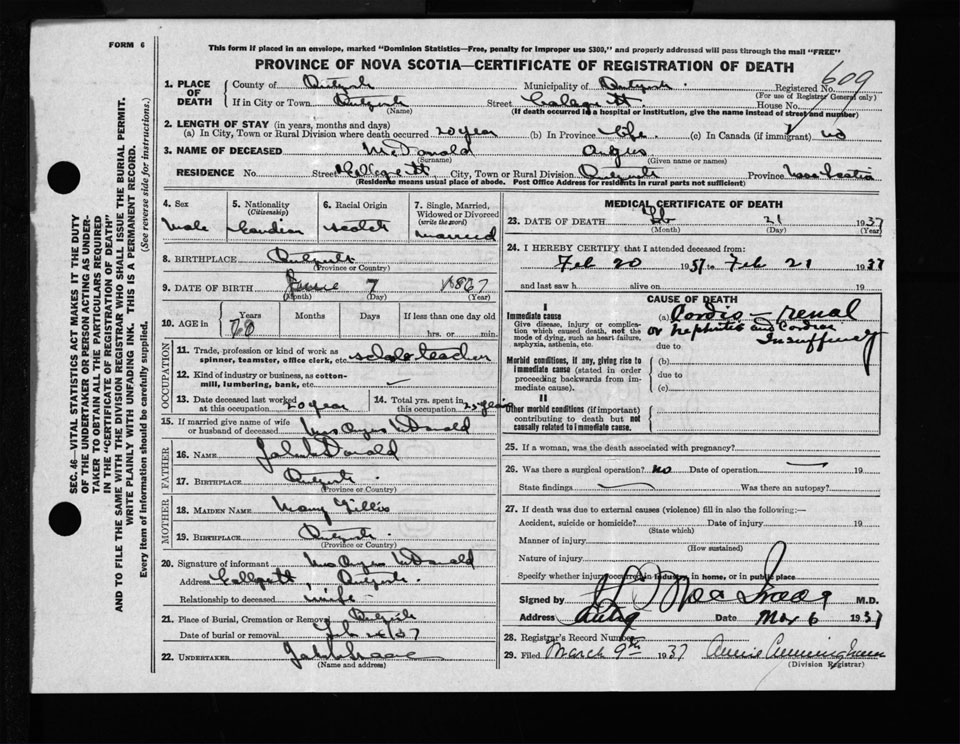 FORM 6
This form if placed in an envelope, marked "Dominion Statistics—Free, penalty for improper use $300," and properly addressed will pass through the mail "FREE"
PROVINCE OF NOVA SCOTIA—CERTIFICATE OF REGISTRATION OF DEATH
609
1. PLACE OF DEATH
County of
Municipality of
Registered No.
(For use of Registrar General only)
If in City or Town
(Name)
Street College St
House No.
(If death occurred in a hospital or institution, give the name instead of street and number)
2. LENGTH OF STAY (in years, months and days)
(a) In City, Town or Rural Division where death occurred 20 year (b) In Province life (c) In Canada (if immigrant) no
3. NAME OF DECEASED McDonald Angus
(Surname) (Given name or names)
RESIDENCE No. Street College St City, Town or Rural Division Province Nova Scotia
(Residents means usual place of abode. Post Office Address for residents in rural parts not sufficient)
4. Sex
Male
5. Nationality
(Citizenship)
Canadian
6. Racial Origin
Scotch
7. Single, Married, Widowed or Divorced
(write the word)
Married
8. BIRTHPLACE
(Province or Country)
9. DATE OF BIRTH June 7 1867
(Month) (Day) (Year)
10. AGE in
Years Months Days If less than one day
hrs. or min.
OCCUPATION
11. Trade, profession or kind of work as spinner, teamster, office clerk, etc. teacher
12. Kind of industry or business, as cotton-mill, lumbering, bank, etc. —
13. Date deceased last worked at this occupation 20 year
14. Total yrs. spent in this occupation 25 years
15. If married give name of wife or husband of deceased Mrs Angus McDonald
FATHER
16. NAME
17. BIRTHPLACE
(Province or Country)
MOTHER
18. MAIDEN NAME Mary Gillis
19. BIRTHPLACE
(Province or Country)
20. Signature of informant Mrs Angus McDonald
Address
Relationship to deceased wife
21. Place of Burial, Cremation or Removal
Date of burial or removal Feb
22. UNDERTAKER
(Name and address)
MEDICAL CERTIFICATE OF DEATH
23. DATE OF DEATH Feb 21 1937
(Month) (Day) (Year)
24. I HEREBY CERTIFY that I attended deceased from:
Feb 20 1937 to Feb 21 1937
and last saw h alive on 19
CAUSE OF DEATH
I
Immediate cause
Give disease, injury or complication which caused death, not the mode of dying, such as heart failure, asphyxia, asthenia, etc.
(a) Cardio-renal
or nephritis and Cardiac
Insufficiency
due to
Morbid conditions, if any, giving rise to immediate cause (stated in order proceeding backwards from immediate cause).
(b)
due to
(c)
II
Other morbid conditions (if important) contributing to death but not causally related to immediate cause.
25. If a woman, was the death associated with pregnancy?
26. Was there a surgical operation? no Date of operation — 19
State findings Was there an autopsy?
27. If death was due to external causes (violence) fill in also the following:—
Accident, suicide or homicide? Date of injury 19
(State which)
Manner of injury
(How sustained)
Nature of injury
Specify whether injury occurred in industry, in home, or in public place
Signed by M.D.
Address Date Mar 6 1937
28. Registrar's Record Number
29. Filed March 9th 1937 Annie Cunningham
(Division Registrar)
SEC. 46—VITAL STATISTICS ACT MAKES IT THE DUTY
OF THE UNDERTAKER OR PERSON ACTING AS UNDER-
TAKER TO OBTAIN ALL THE PARTICULARS REQUIRED
IN THE "CERTIFICATE OF REGISTRATION OF DEATH"
AND TO FILE THE SAME WITH THE DIVISION REGISTRAR WHO SHALL ISSUE THE BURIAL PERMIT.
WRITE PLAINLY WITH UNFADING INK. THIS IS A PERMANENT RECORD.
Every item of information should be carefully supplied. (See reverse side for instructions.)